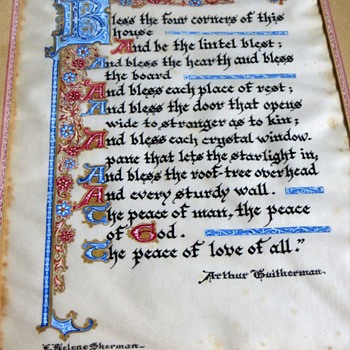 Bless the four corners of this
house
And be the lintel blest;
And bless the hearth and bless
the board
And bless each place of rest;
And bless the door that opens
wide to stranger as to kin;
And bless each crystal window-
pane that lets the starlight in;
And bless the roof-tree overhead
And every sturdy wall.
The peace of man, the peace
of God.
The peace of love of all."
Arthur Guitherman.
Helene Sherman